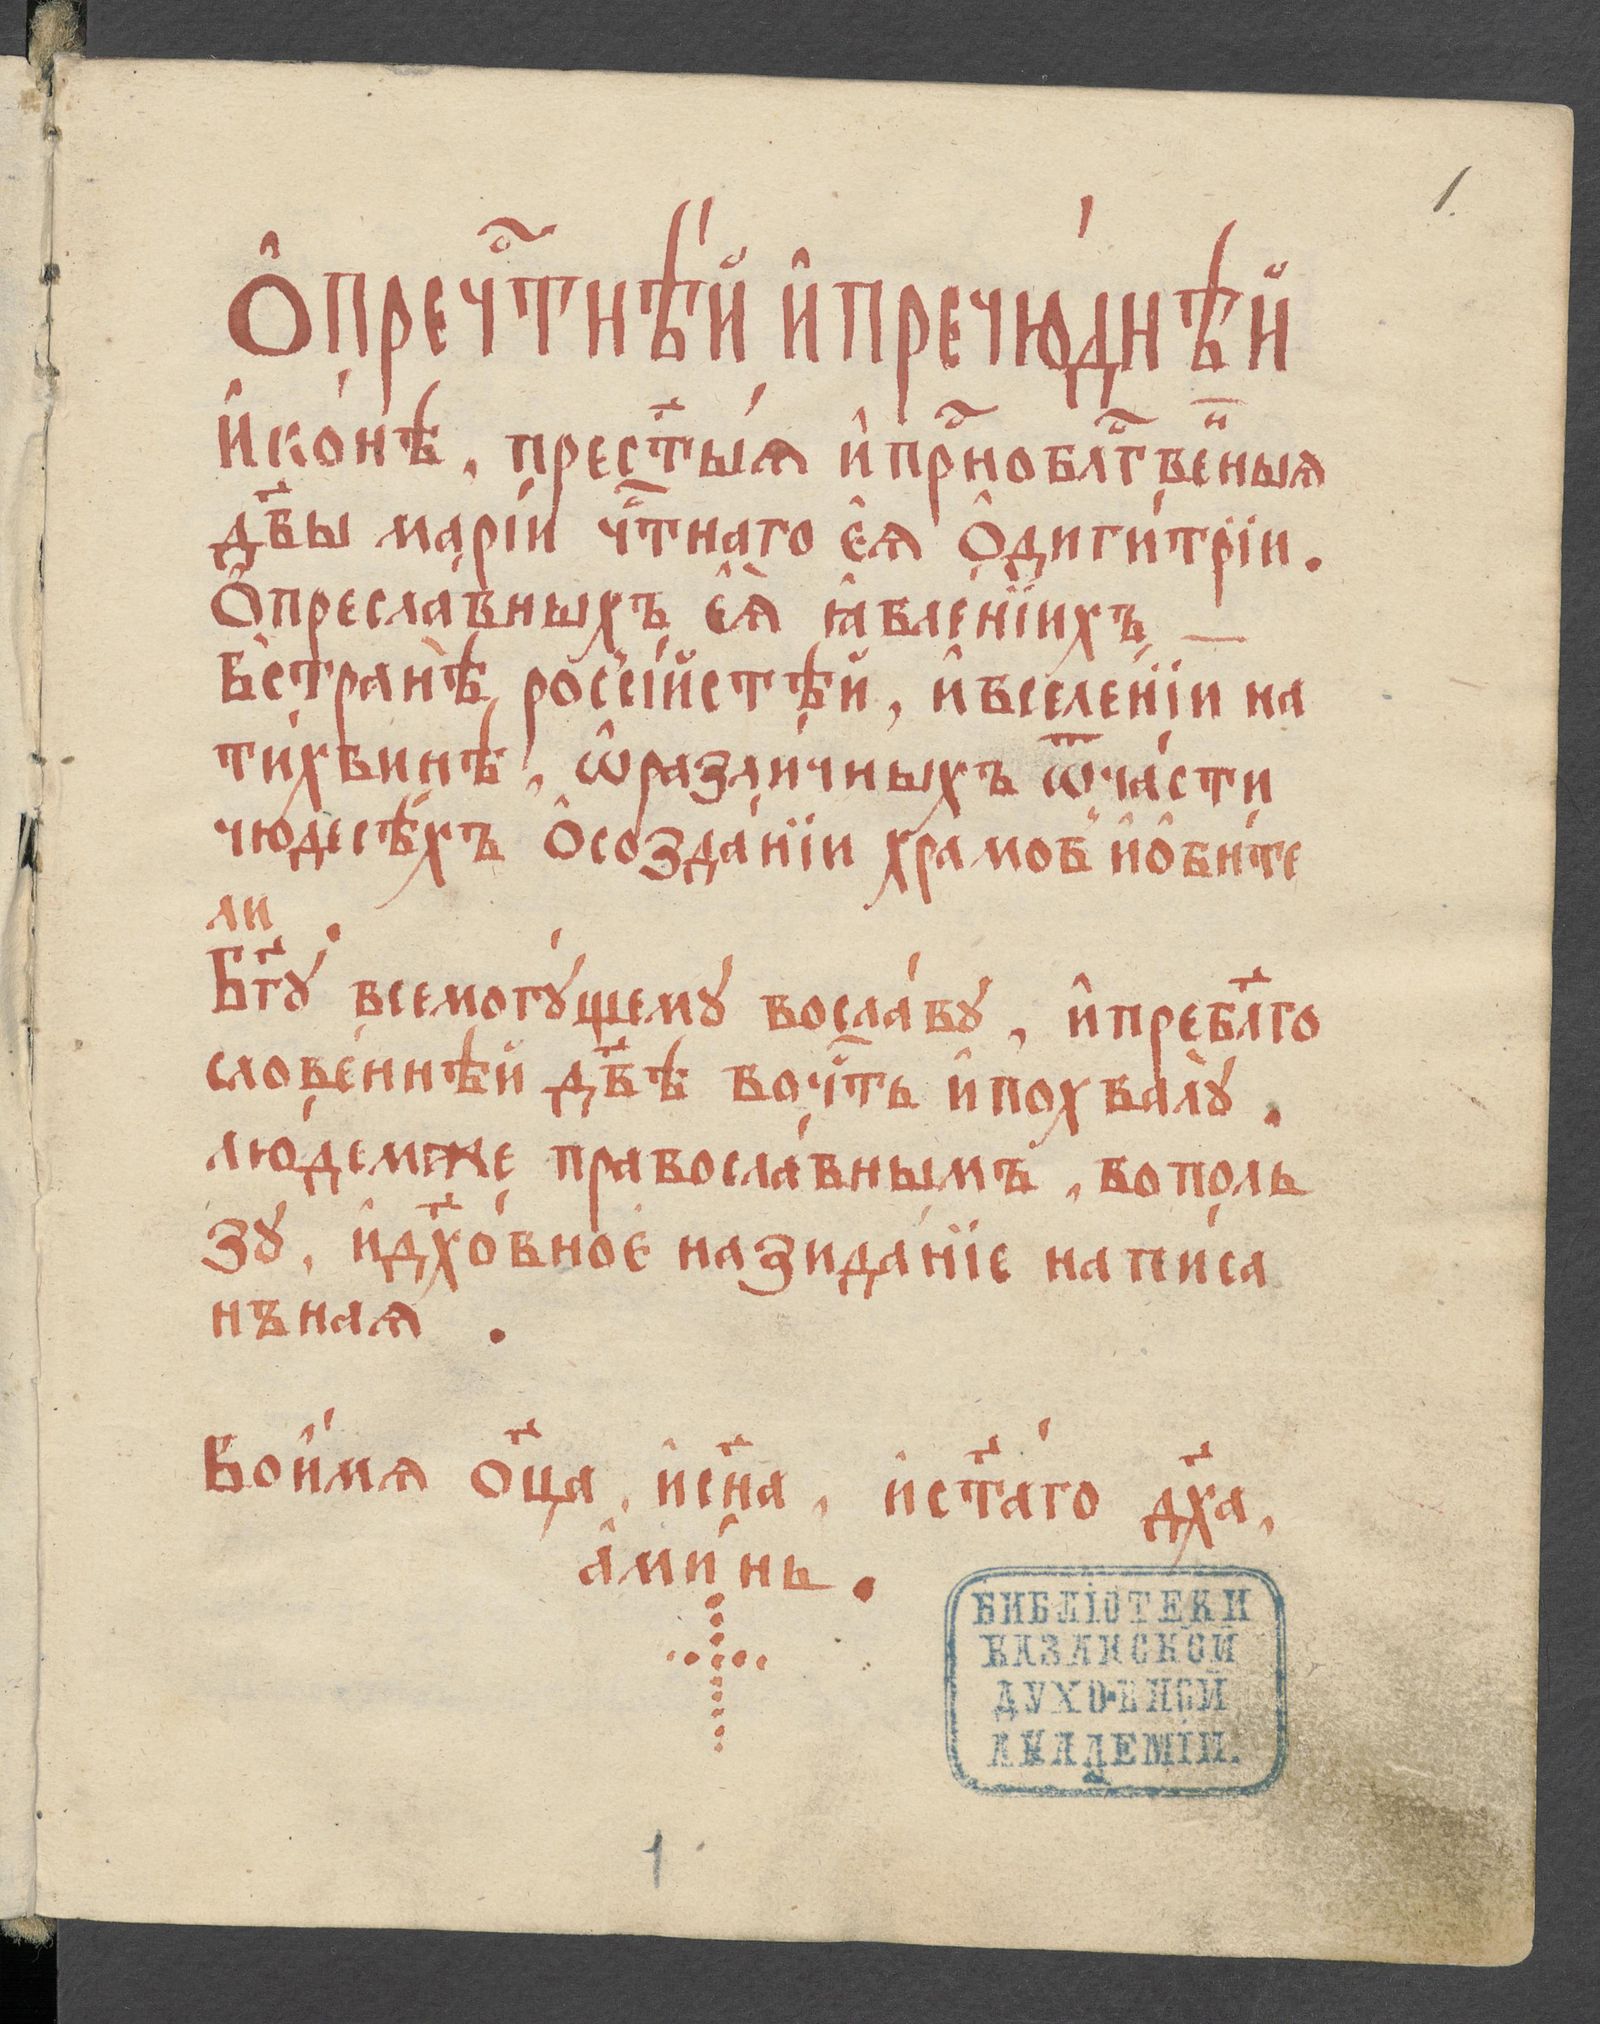 1.
Ѻ҆пречⷭ҇тнѣ́й и҆пречю́днѣй
и҆ко́нѣ, прест҃ы́ѧ и҆прⷭ҇нобл҃гⷭ҇ве́нⷩ҇ыѧ
дв҃ы марі́и чⷭ҇тнаго є҆ѧ̀ ѻ҆диги́тріи.
Ѻ҆пресла́вныхъ є҆ѧ̀ ꙗ҆вле́нїихъ
Встра́нѣ россі́йстѣй, и҆вселе́нїи на
ти́хвинѣ, ѡ҆разли́чныхъ ѿча́сти
чюдесѣ́хъ ѻ҆созда́нїи храмов и҆ѻ҆би́те
ли.
Бг҃ꙋ всемогꙋ́щемꙋ восла́вꙋ, и҆пребл҃го
слове́ннѣй дв҃ѣ вочⷭ҇ть и҆похвалꙋ̀.
лю́демже правосла́внымъ, вополь
зꙋ, и҆дх҃о́вноє назида́нїе написа
нъная.
Вои҆́мѧ ѻц҃а, и҆сн҃а, и҆ст҃а́го дх҃а,
а҆ми́нь.
БИБЛІОТЕКИ
КАЗАНСКОЙ
ДУХОВНОЙ
АКАДЕМІИ.
1